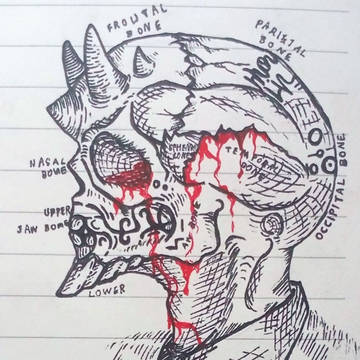 FRONTAL
BONE
PARIETAL
BONE
NASAL
BONE
TEMPORAL
BONE
UPPER
JAW BONE
OCCIPITAL BONE
LOWER